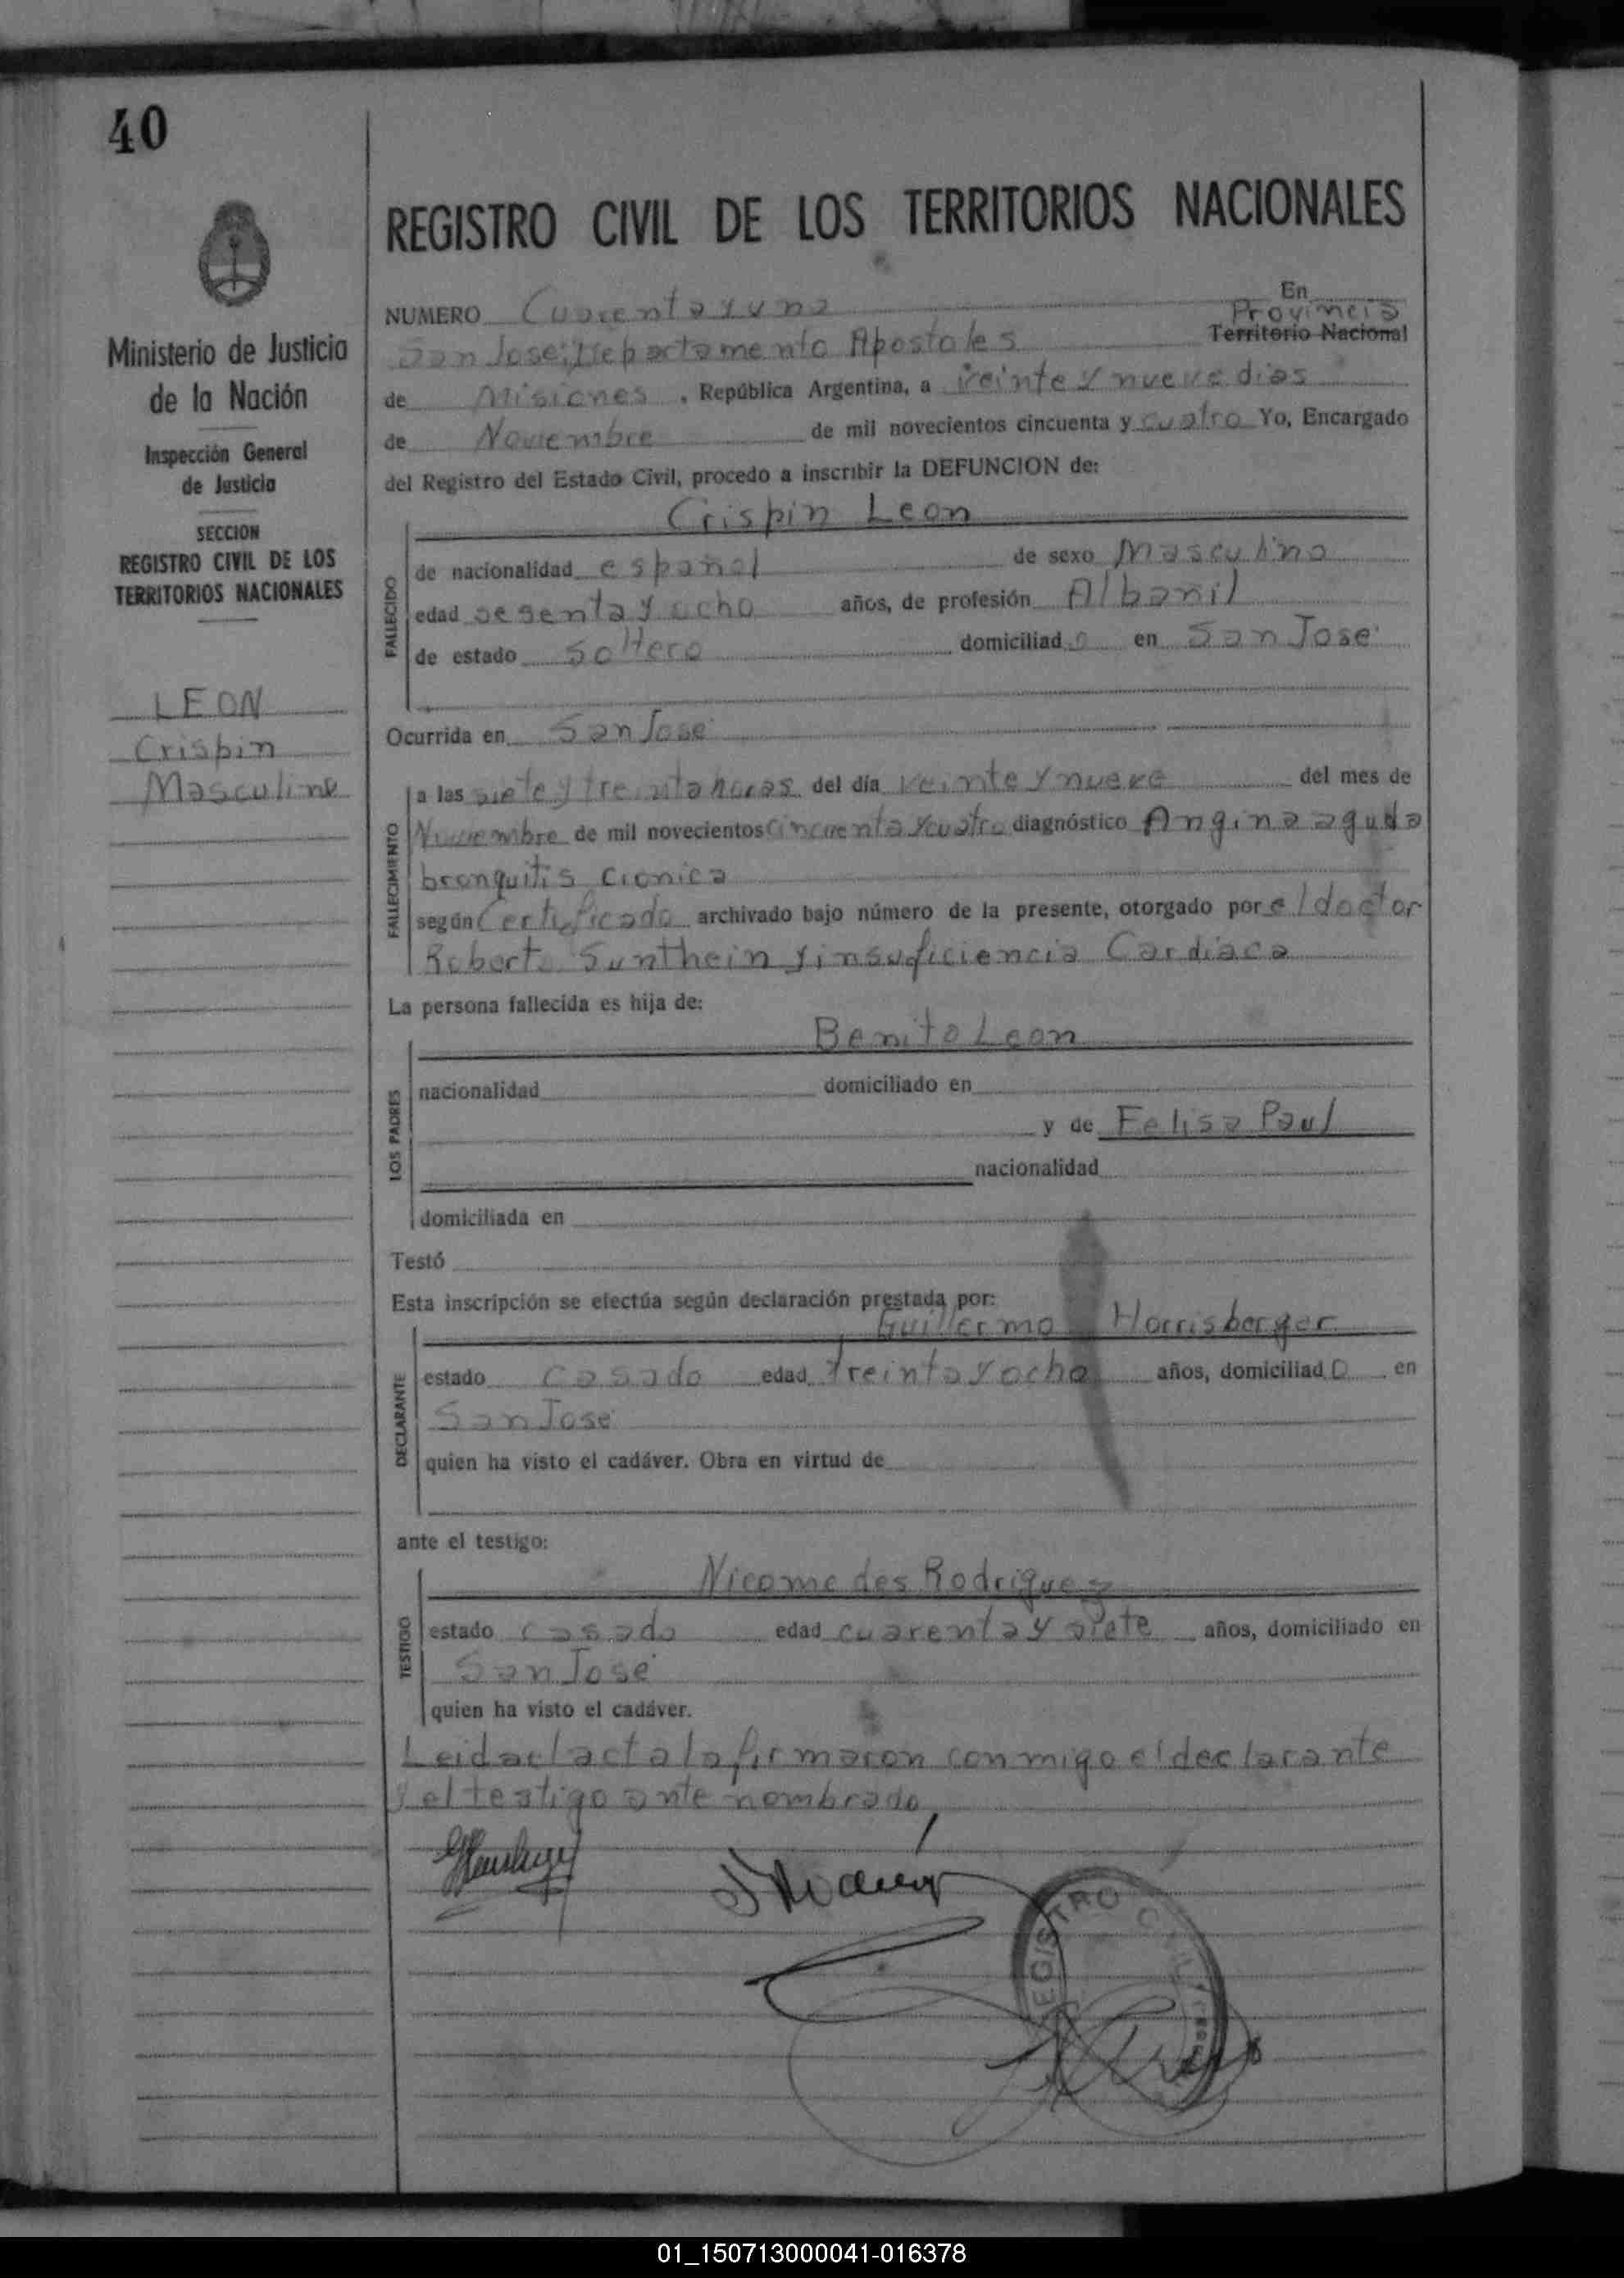 40
REGISTRO CIVIL DE LOS TERRITORIOS NACIONALES
Ministerio de Justicia
de la Nación
Inspección General
de Justicia
SECCION
REGISTRO CIVIL DE LOS
TERRITORIOS NACIONALES
LEON
Crispin
Masculino
NUMERO Cuarenta y uno En
Provincia
San Jose; Departamento Apostoles Territorio Nacional
de Misiones, República Argentina, a veinte y nueve dias
de Noviembre de mil novecientos cincuenta y cuatro Yo, Encargado
del Registro del Estado Civil, procedo a inscribir la DEFUNCION de:
Crispin Leon
FALLECIDO
de nacionalidad español de sexo Masculino
edad sesenta y ocho años, de profesión Albanil
de estado Soltero domiciliado en San Jose
Ocurrida en San Jose
FALLECIMIENTO
a las siete y treinta horas del día veinte y nueve del mes de
Noviembre de mil novecientos cincuenta y cuatro diagnóstico Angina aguda
bronquitis cronica
según Certificado archivado bajo número de la presente, otorgado por el doctor
Roberto Sunthein y insuficiencia Cardiaca
La persona fallecida es hija de:
Benito Leon
LOS PADRES
nacionalidad domiciliado en
y de Felisa Paul
nacionalidad
domiciliada en
Testó
Esta inscripción se efectúa según declaración prestada por:
Guillermo Horrisberger
DECLARANTE
estado casado edad treinta y ocho años, domiciliado en
San Jose
quien ha visto el cadáver. Obra en virtud de
ante el testigo:
Nicomedes Rodriguez
TESTIGO
estado casado edad cuarenta y siete años, domiciliado en
San Jose
quien ha visto el cadáver.
Leida el acta la firmaron conmigo el declarante
y el testigo ante nombrado
REGISTRO CIVIL
01_150713000041-016378